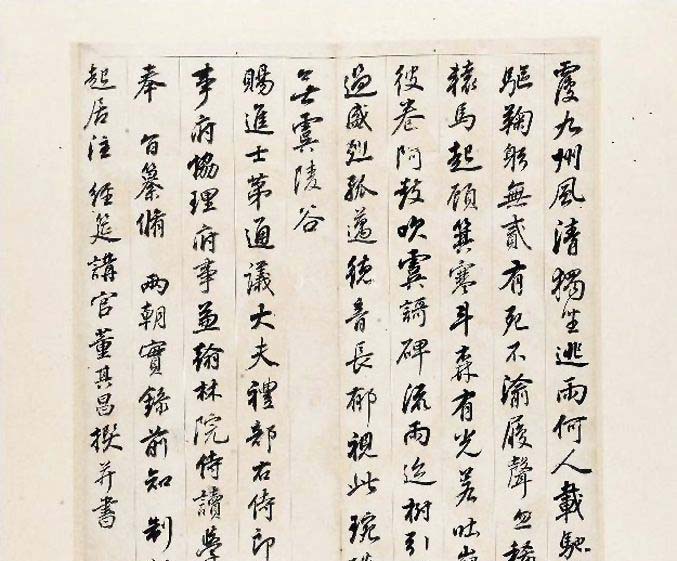 霞九州風清獨坐逃雨何人載馳
驅鞠躬無貳有死不渝履聲忽
猿馬起顧箕寒斗森有光若吐
彼卷阿鼓吹虞謌碑流雨迄樹引
過感烈孤邁德音長郁視此琬
無虞陵谷
賜進士第通議大夫禮部右侍郎
事府協理府事兼翰林院侍讀學
奉旨纂脩兩朝實錄前知制
起居注經筵講官董其昌撰并書